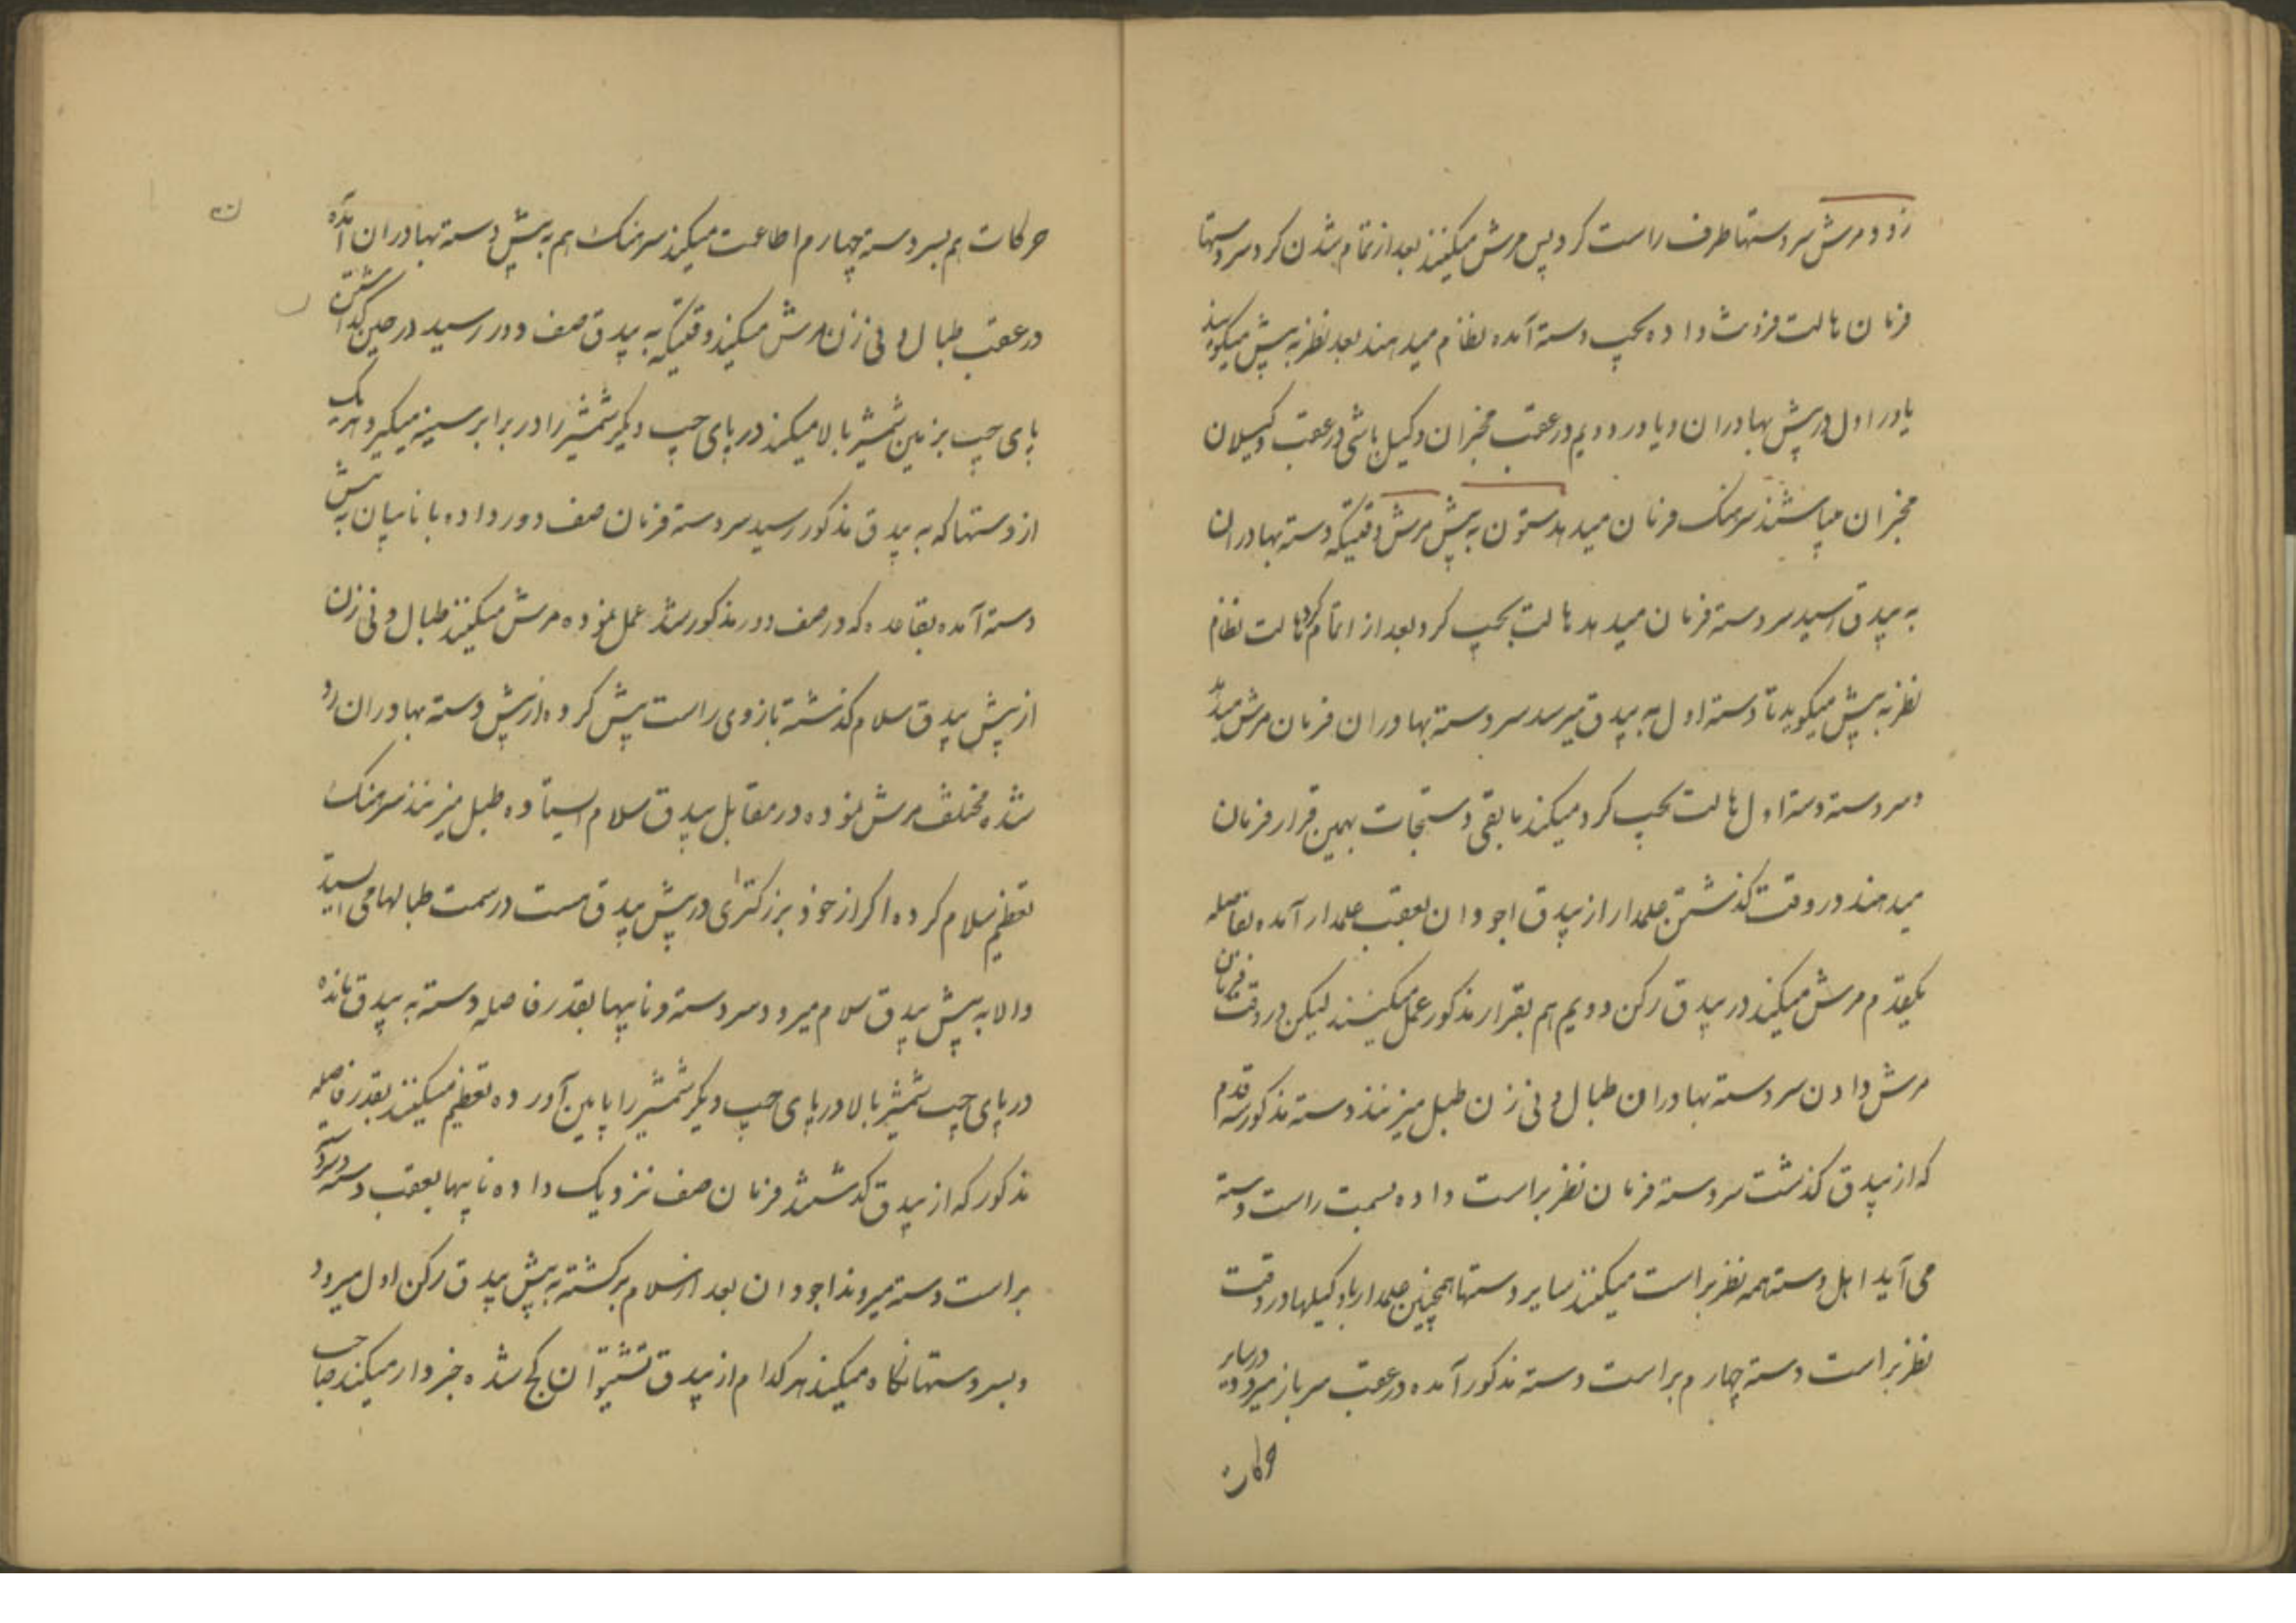 زود مرش سر دستها طرف راست کرد پس مرش میکنند بعد از تمام شدن کرد سر دستها
فرمان هالت فرونت داده بچپ دسته آمده نظام میدهند بعد نظر به پیش میکویند
یاور اول در پیش بهادران و یاور دویم در عقب مخبران وکیل باشی در عقب وکیلان
مخبران میباشند سرهنک فرمان میدهد ستون به پیش مرش وقتیکه دسته بهادران
به بیدق رسید سر دسته فرمان میدهد هالت بچپ کرد بعد از اتمام کرد هالت نظام
نظر به پیش میکوید تا دسته اول به بیدق میرسد سر دسته بهادران فرمان مرش میدهد
و سر دسته دسته اول هالت بچپ کرد میکند مابقی دستجات بهمین قرار فرمان
میدهند در وقت کذشتن علمدار از بیدق اجودان بعقب علمدار آمده بفاصله
یکقدم مرش میکند در بیدق رکن دویم هم بقرار مذکور عمل میکنند لیکن در وقت فرمان
مرش دادن سر دسته بهادران طبال و نی زن طبل میزنند دسته مذکور سه قدم
که از بیدق کذشت سر دسته فرمان نظر براست داده بسمت راست دسته
می آید اهل دسته همه نظر براست میکنند سایر دستها همچنین علمدار با وکیلها در وقت
نظر براست دسته چهارم براست دسته مذکور آمده در عقب سرباز میرود در سایر
حرکات
حرکات هم بسر دسته چهارم اطاعت میکند سرهنک هم به پیش دسته بهادران آمده
در عقب طبال و نی زن مرش میکند وقتیکه به بیدق صف دور رسید در حین کذاشتن
پای چپ بزمین شمشیر بالا میکند در پای چپ دیکر شمشیر را در برابر سینه میکیرد هر یک
از دستها که به بیدق مذکور رسید سر دسته فرمان صف دور داده با نایبان به پیش
دسته آمده بقاعده که در صف دور مذکور شد عمل نموده مرش میکنند طبال و نی زن
از پیش بیدق سلام کذشته بازوی راست پیش کرده از پیش دسته بهادران رد
شده مختلف مرش نموده در مقابل بیدق سلام ایستاده طبل میزنند سرهنک
تعظیم سلام کرده اکر از خود بزرکتری در پیش بیدق هست در سمت طبالها می ایستد
والا به پیش بیدق سلام میرود سر دسته و نایبها بقدر فاصله دسته به بیدق مانده
در پای چپ شمشیر بالا در پای چپ دیکر شمشیر را پایین آورده تعظیم میکنند بقدر فاصله
مذکور که از بیدق کذشتند فرمان صف نزدیک داده نایبها بعقب دسته و سر دسته
براست دسته میروند اجودان بعد از سلام برکشته به پیش بیدق رکن اول میرود
و بسر دستها نکاه میکند هر کدام از بیدق کج شده خبردار میکند صاحب